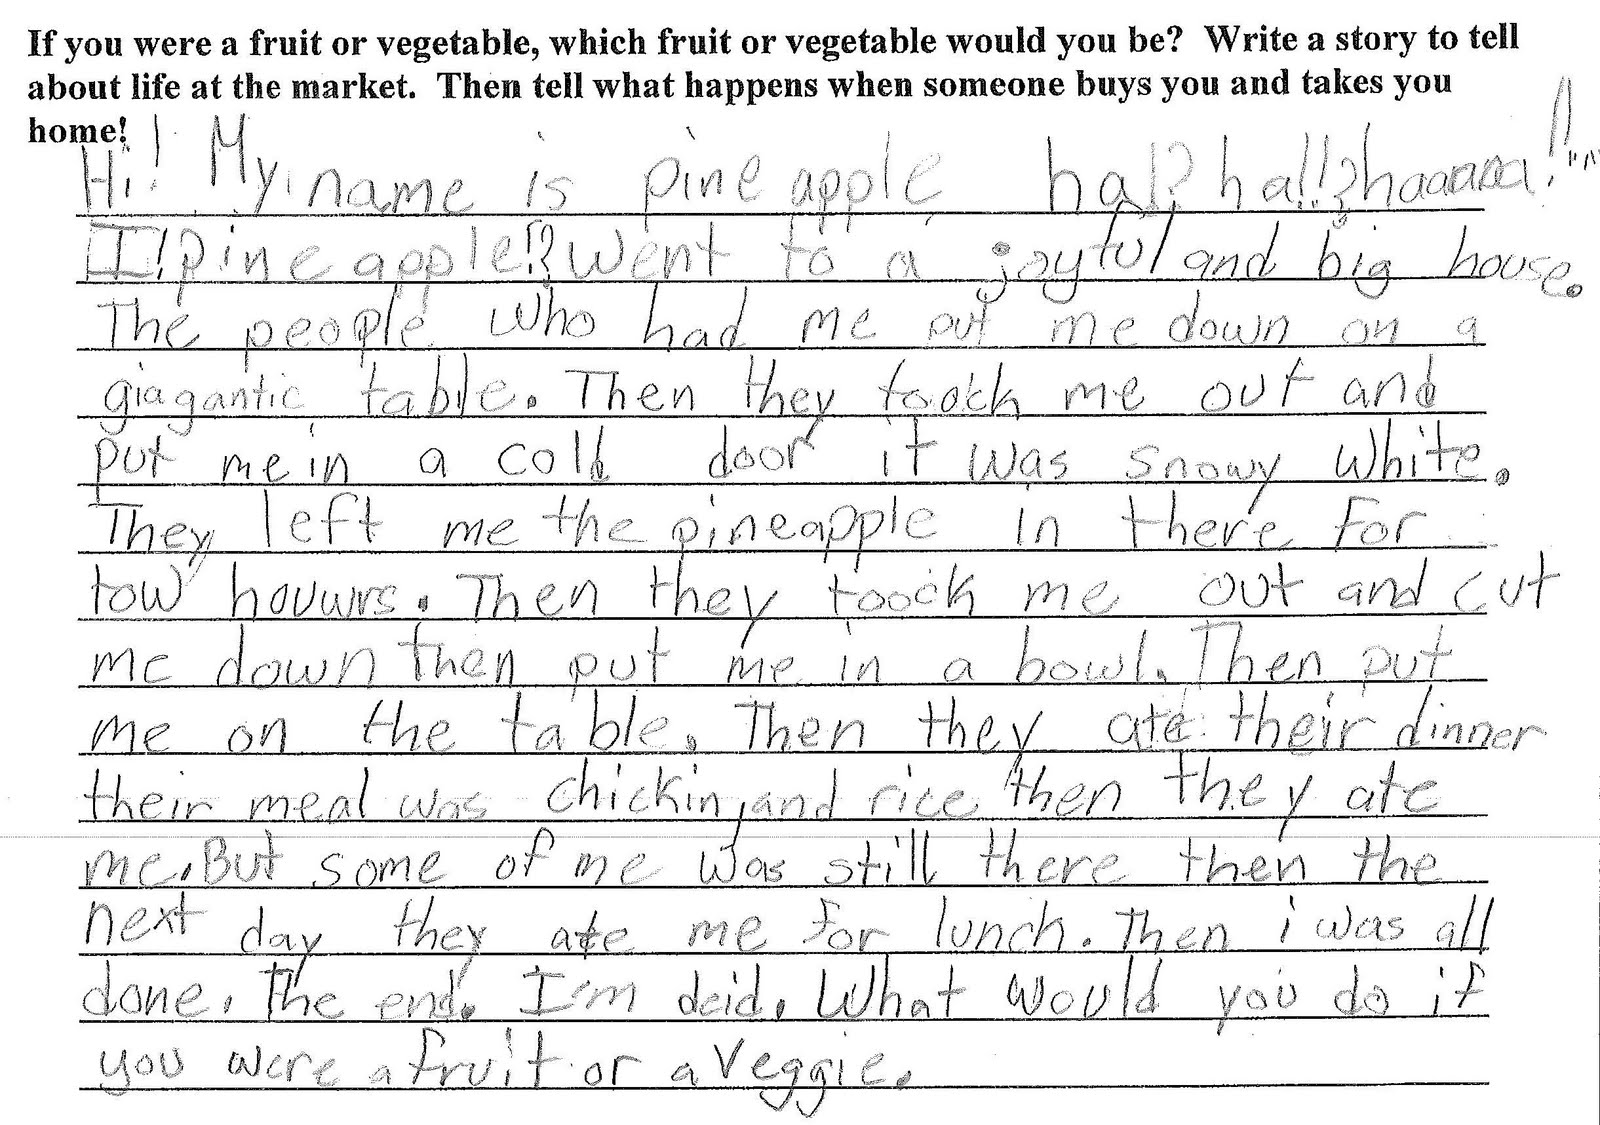 If you were a fruit or vegetable, which fruit or vegetable would you be?  Write a story to tell
about life at the market.  Then tell what happens when someone buys you and takes you
home!
Hi! My name is pineapple ha!? ha!!? haaaaa!
I!pineapple!? went to a joyful and big house.
The people who had me put me down on a
giagantic table. Then they toock me out and
put me in a cold door it was snowy white.
They left me the pineapple in there for
tow houwrs. Then they toock me out and cut
me down then put me in a bowl. Then put
me on the table. Then they ate their dinner
their meal was chickin, and rice then they ate
me. But some of me was still there then the
next day they ate me for lunch. Then i was all
done. The end. I'm deid. What would you do if
you were a fruit or a veggie.